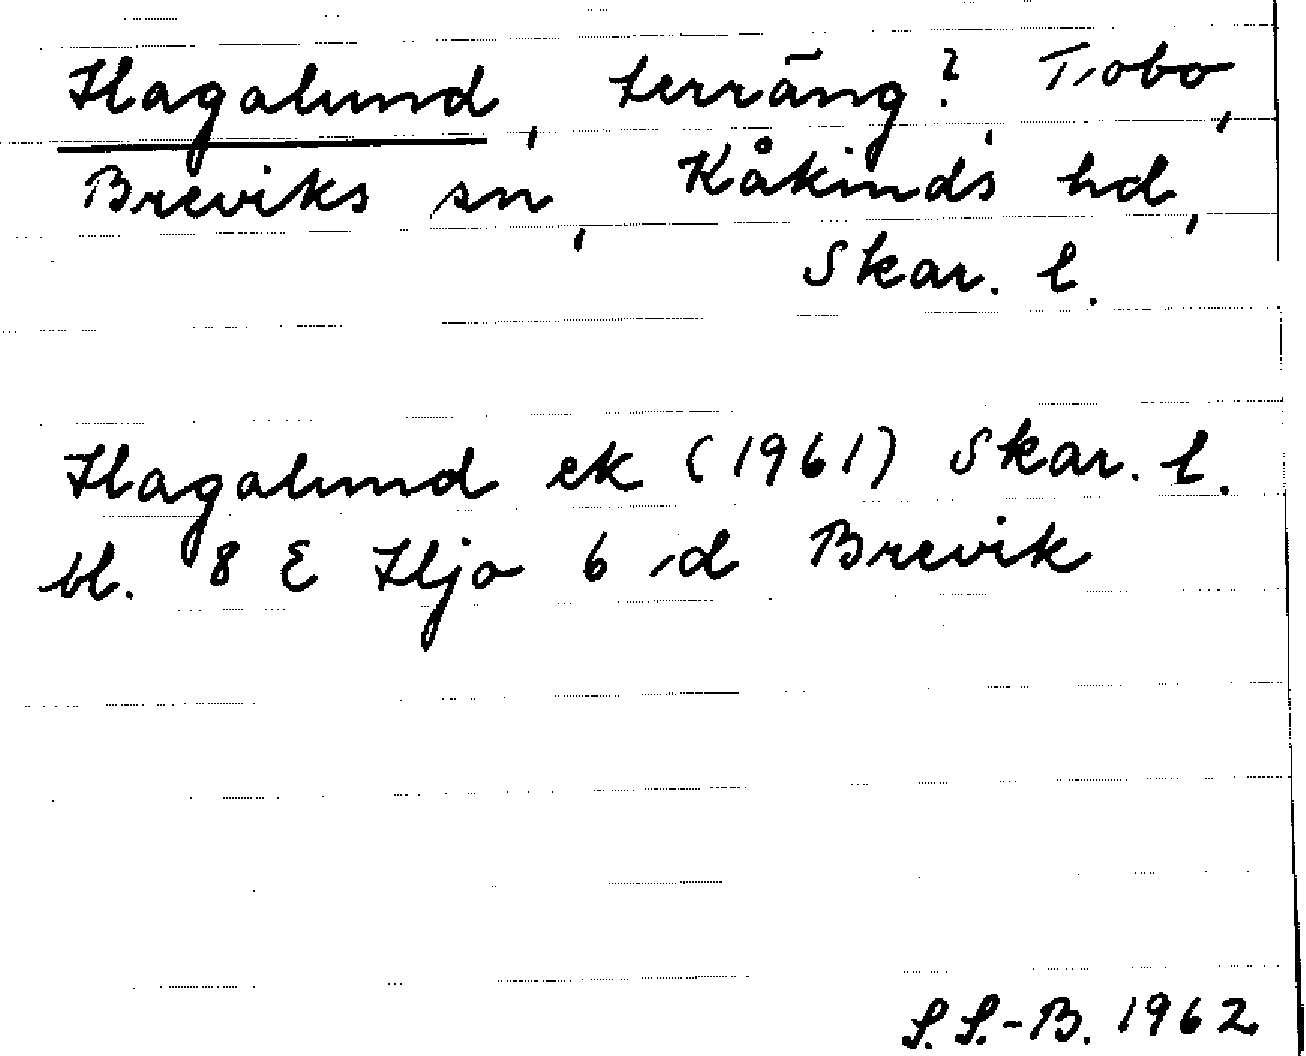 Hagalund, terräng? Tobo,
Breviks sn, Kåkinds hd,
Skar. l.
Hagalund ek (1961) Skar. l.
bl. 8 E Hjo 6 d Brevik
S. S.-B. 1962